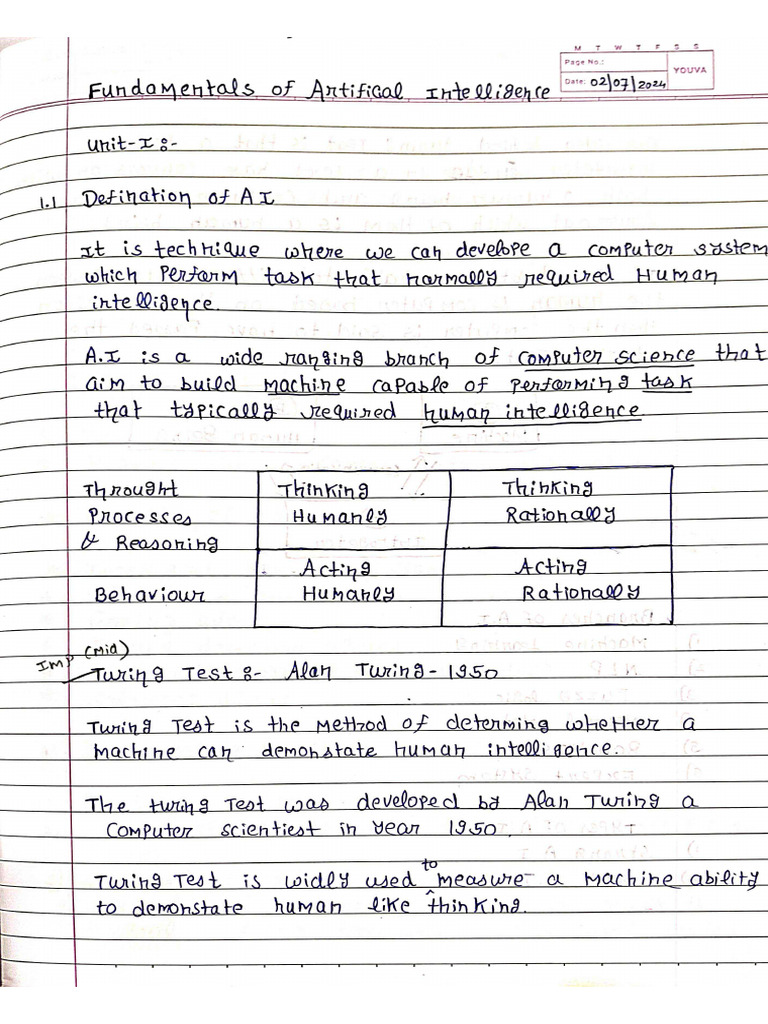 M T W T F S S
Page No.:
YOUVA
Date: 02/07/2024
Fundamentals of Artifical Intelligence
Unit-I :-
1.1 Defination of AI
It is technique where we can develope a computer system
which perform task that normally required Human
intelligence.
A.I is a wide ranging branch of computer science that
aim to build machine capable of performing task
that typically required human intelligence
Throught Thinking Thinking
Processes Humanly Rationally
& Reasoning
Acting Acting
Behaviour Humanly Rationally
IMP (Mid)
Turing Test :- Alan Turing - 1950
Turing Test is the method of determing whether a
machine can demonstate human intelligence.
The turing Test was developed by Alan Turing a
computer scientiest in year 1950.
Turing Test is widly used to measure a machine ability
to demonstate human like thinking.